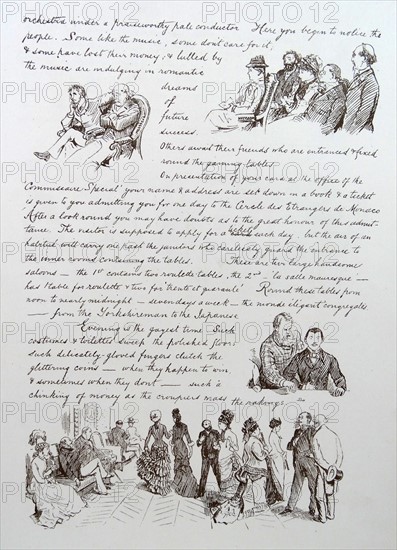 orchestra under a praiseworthy pale conductor Here you begin to notice the
people. Some like the music, some dont care for it,
& some have lost their money; & lulled by
the music are indulging in romantic
dreams
of
future
success.
Others await their friends who are entranced & fixed
round the gaming tables.
On presentation of your card at the office of the
Commissaire Special your name & address are set down in a book & a ticket
is given to you admitting you for one day to the Cercle des Etrangers de Monaco
After a look round you may have doubts as to the great honour of this admit-
tance. The visitor is supposed to apply for a ticket each day, but the air of an
habitué will carry one past the janitors who carelessly guard the entrance to
the inner rooms containing the tables. These are two large handsome
saloons — the 1st contains two roulette tables, the 2nd — la salle mauresque —
has 1 table for roulette & two for 'trente et quarante' Round these tables from
noon to nearly midnight — seven days a week — the monde élégant congregates
— from the Yorkshireman to the Japanese
Evening is the gayest time. Such
costumes & toilettes sweep the polished floor
such delicately gloved fingers clutch the
glittering coins — when they happen to win
& sometimes when they dont — such a
chinking of money as the croupiers mass the rakings.
PHOTO12